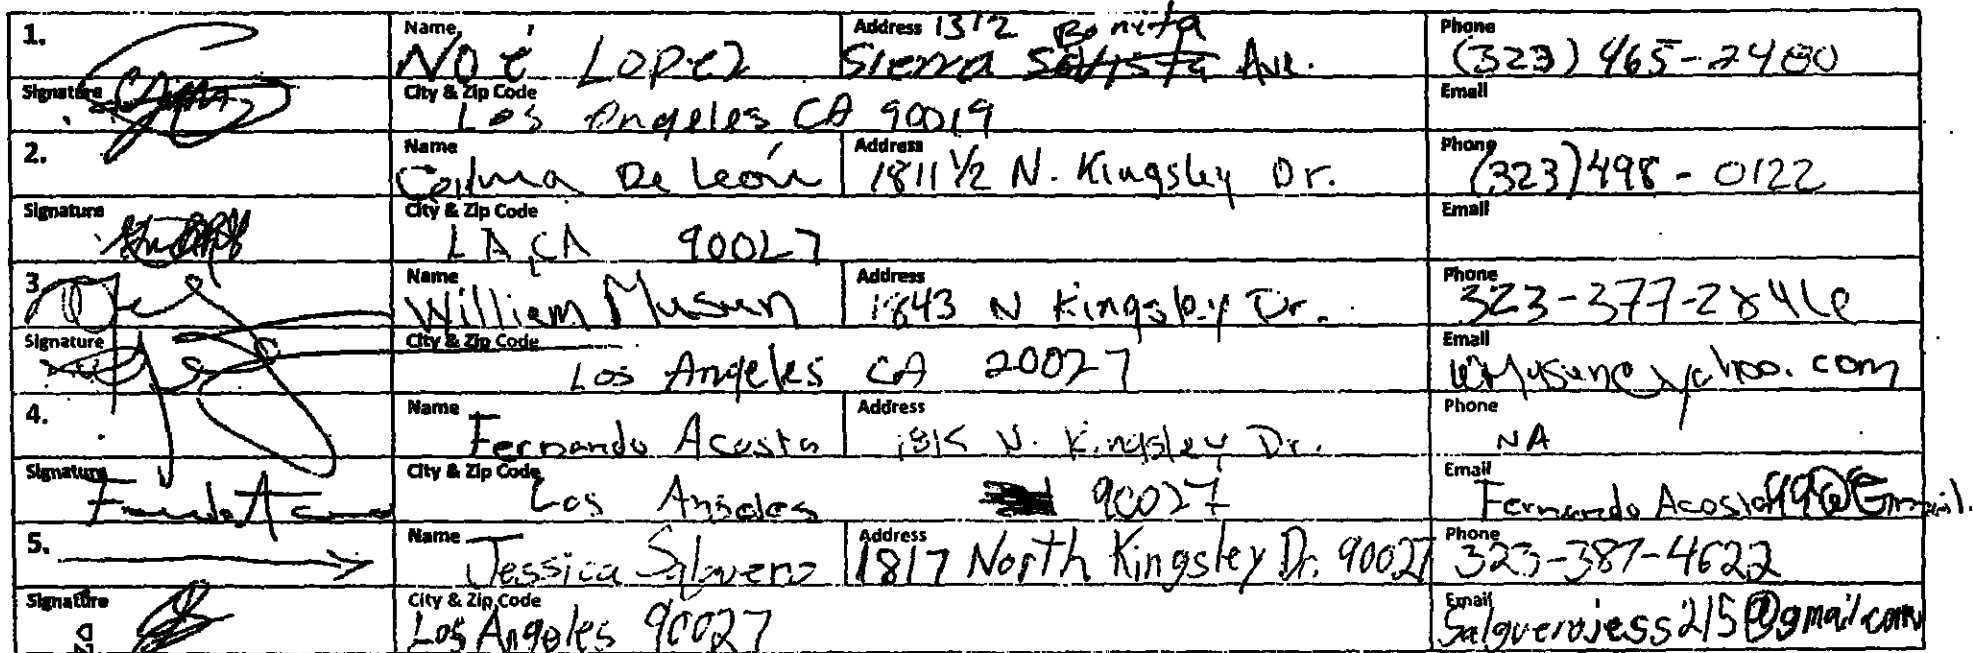 1. Name Noé Lopez Address 1312 Bonita Sierra Ave. Phone (323) 465-2480
Signature City & Zip Code Los Angeles CA 90019 Email
2. Name De León Address 1811 1/2 N. Kingsley Dr. Phone (323) 498-0122
Signature City & Zip Code LA, CA 90027 Email
3 Name William Musun Address 1843 N Kingsley Dr. Phone 323-377-2846
Signature City & Zip Code Los Angeles CA 20027 Email wMusun@yahoo.com
4. Name Fernando Acosta Address N. Kingsley Dr. Phone NA
Signature City & Zip Code Los Angeles 90027 Email Fernando
5. Name Jessica Address 1817 North Kingsley Dr. 90027 Phone 323-387-4622
Signature City & Zip Code Los Angeles 90027 Email Salguerojess215@gmail.com